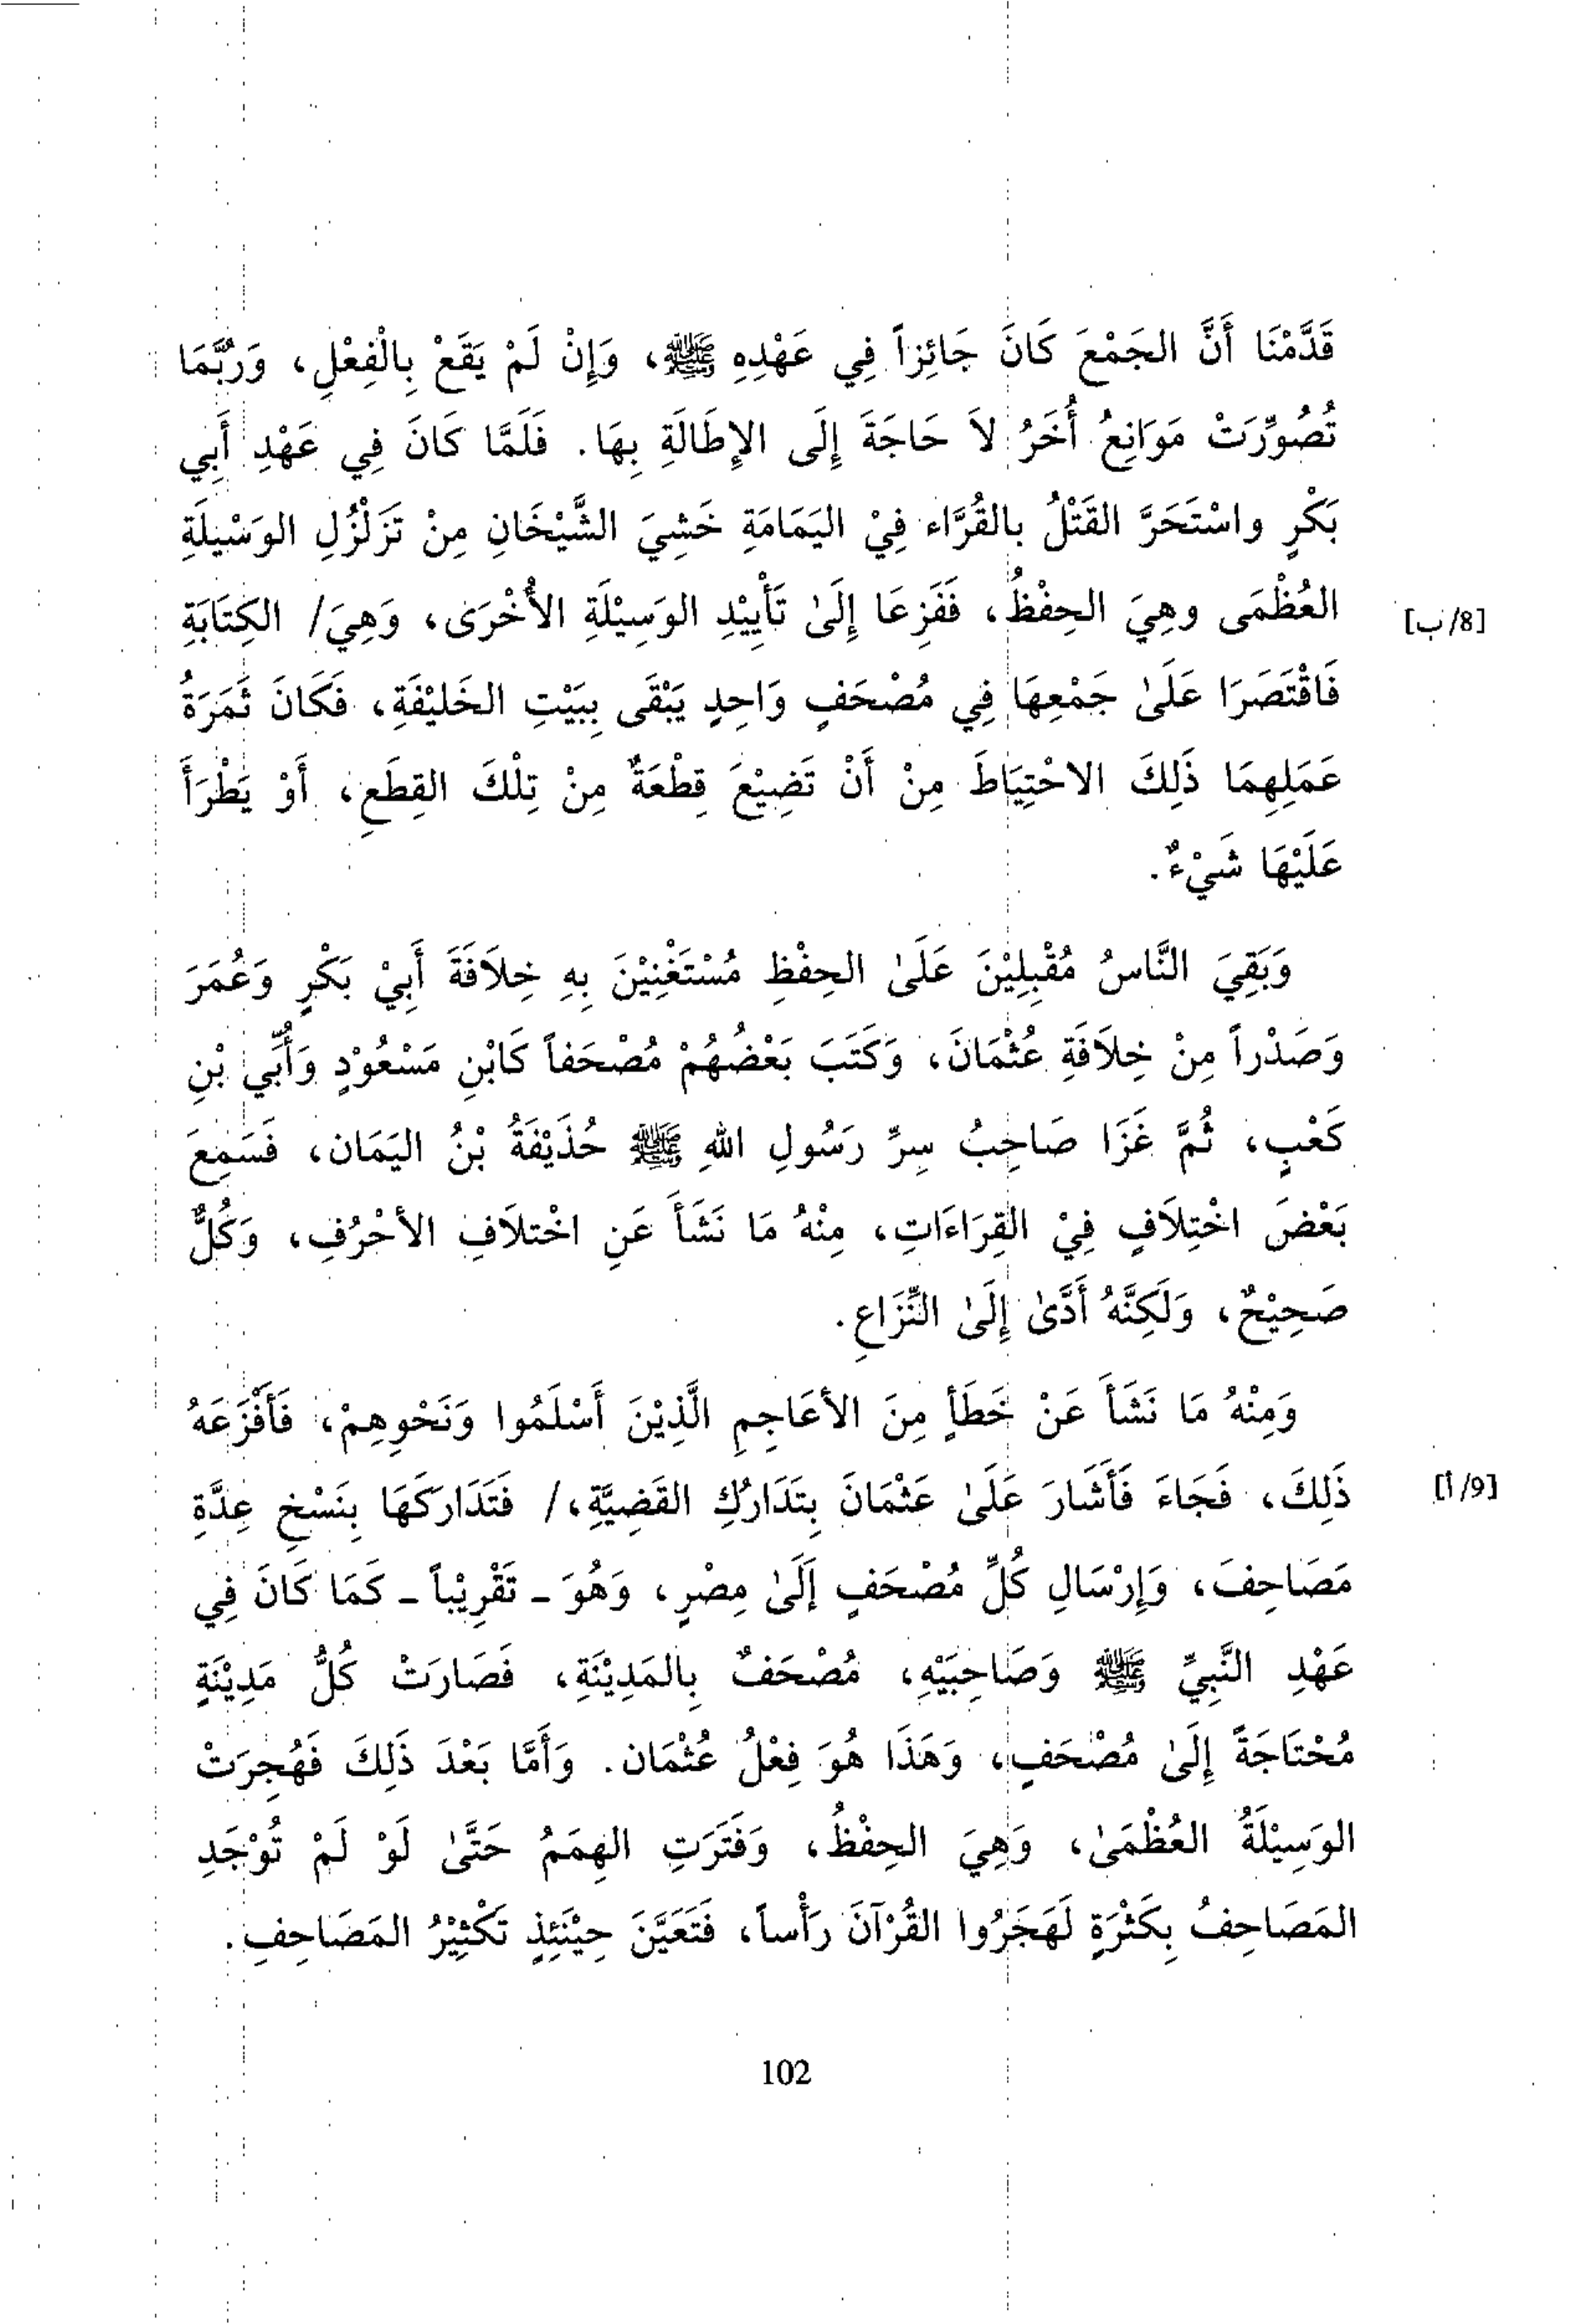 قَدَّمْنَا أَنَّ الجَمْعَ كَانَ جَائِزاً فِي عَهْدِهِ ﷺ، وَإِنْ لَمْ يَقَعْ بِالْفِعْلِ، وَرُبَّمَا
تُصُوِّرَتْ مَوَانِعُ أُخَرُ لاَ حَاجَةَ إِلَى الإِطَالَةِ بِهَا. فَلَمَّا كَانَ فِي عَهْدِ أَبِي
بَكْرٍ واسْتَحَرَّ القَتْلُ بالقُرَّاء فِيْ اليَمَامَةِ خَشِيَ الشَّيْخَانِ مِنْ تَزَلْزُلِ الوَسْيلَةِ
العُظْمَى وهِيَ الحِفْظُ، فَفَزِعَا إِلَىٰ تَأْيِيْدِ الوَسِيْلَةِ الأُخْرَى، وَهِيَ/ الكِتَابَةِ [8/ب]
فَاقْتَصَرَا عَلَىٰ جَمْعِهَا فِي مُصْحَفٍ وَاحِدٍ يَبْقَى بِبَيْتِ الخَلِيْفَةِ، فَكَانَ ثَمَرَةُ
عَمَلِهِمَا ذَلِكَ الاحْتِيَاطَ مِنْ أَنْ تَضِيْعَ قِطْعَةٌ مِنْ تِلْكَ القِطَعِ، أَوْ يَطْرَأَ
عَلَيْهَا شَيْءٌ.
وَبَقِيَ النَّاسُ مُقْبِلِيْنَ عَلَىٰ الحِفْظِ مُسْتَغْنِيْنَ بِهِ خِلاَفَةَ أَبِيْ بَكْرٍ وَعُمَرَ
وَصَدْراً مِنْ خِلاَفَةِ عُثْمَانَ، وَكَتَبَ بَعْضُهُمْ مُصْحَفاً كَابْنِ مَسْعُوْدٍ وَأُبِّي بْنِ
كَعْبٍ، ثُمَّ غَزَا صَاحِبُ سِرِّ رَسُولِ اللهِ ﷺ حُذَيْفَةُ بْنُ اليَمَان، فَسَمِعَ
بَعْضَ اخْتِلاَفٍ فِيْ القِرَاءَاتِ، مِنْهُ مَا نَشَأَ عَنِ اخْتلاَفِ الأحْرُفِ، وَكُلٌّ
صَحِيْحٌ، وَلَكِنَّهُ أَدَّىٰ إِلَىٰ النِّزَاعِ.
وَمِنْهُ مَا نَشَأَ عَنْ خَطَأٍ مِنَ الأعَاجِمِ الَّذِيْنَ أَسْلَمُوا وَنَحْوِهِمْ، فَأَفْزَعَهُ
ذَلِكَ، فَجَاءَ فَأَشَارَ عَلَىٰ عَثْمَانَ بِتَدَارُكِ القَضِيَّةِ،/ فَتَدَارَكَهَا بِنَسْخِ عِدَّةِ [9/أ]
مَصَاحِفَ، وَإِرْسَالِ كُلِّ مُصْحَفٍ إَلَىٰ مِصْرٍ، وَهُوَ ـ تَقْرِيْباً ـ كَمَا كَانَ فِي
عَهْدِ النَّبِيِّ ﷺ وَصَاحِبَيْهِ، مُصْحَفٌ بِالمَدِيْنَةِ، فَصَارَتْ كُلُّ مَدِيْنَةٍ
مُحْتَاجَةً إِلَىٰ مُصْحَفٍ، وَهَذَا هُوَ فِعْلُ عُثْمَان. وَأَمَّا بَعْدَ ذَلِكَ فَهُجِرَتْ
الوَسِيْلَةُ العُظْمَىٰ، وَهِيَ الحِفْظُ، وَفَتَرَتِ الهِمَمُ حَتَّىٰ لَوْ لَمْ تُوْجَدِ
المَصَاحِفُ بِكَثْرَةٍ لَهَجَرُوا القُرْآنَ رَأْساً، فَتَعَيَّنَ حِيْنَئِذٍ تَكْثِيْرُ المَصَاحِفِ.
102